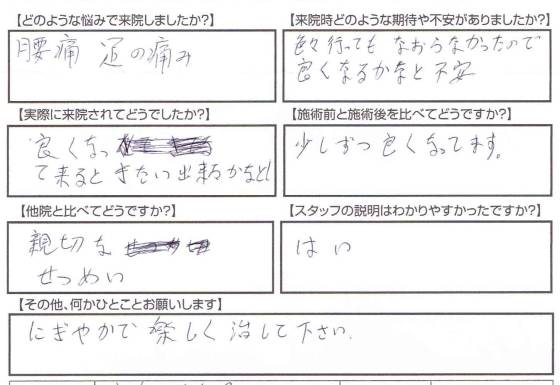 【どのような悩みで来院しましたか?】
腰痛 足の痛み
【来院時どのような期待や不安がありましたか?】
色々行っても なおらなかったので
良くなるかなと 不安
【実際に来院されてどうでしたか?】
良くなっ
て来ると きたい 出来るかなと!
【施術前と施術後を比べてどうですか?】
少しずつ良くなってます。
【他院と比べてどうですか?】
親切な
せつめい
【スタッフの説明はわかりやすかったですか?】
はい
【その他、何かひとことお願いします】
にぎやかで 楽しく 治して下さい.